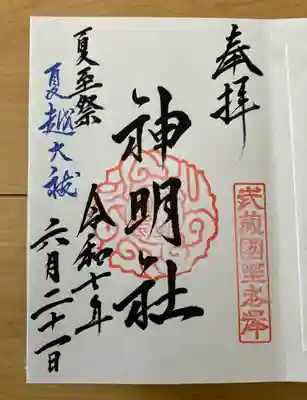 奉拝
武蔵國聖老澤
神明社
令和七年
六月二十一日
夏至祭
夏越大祓